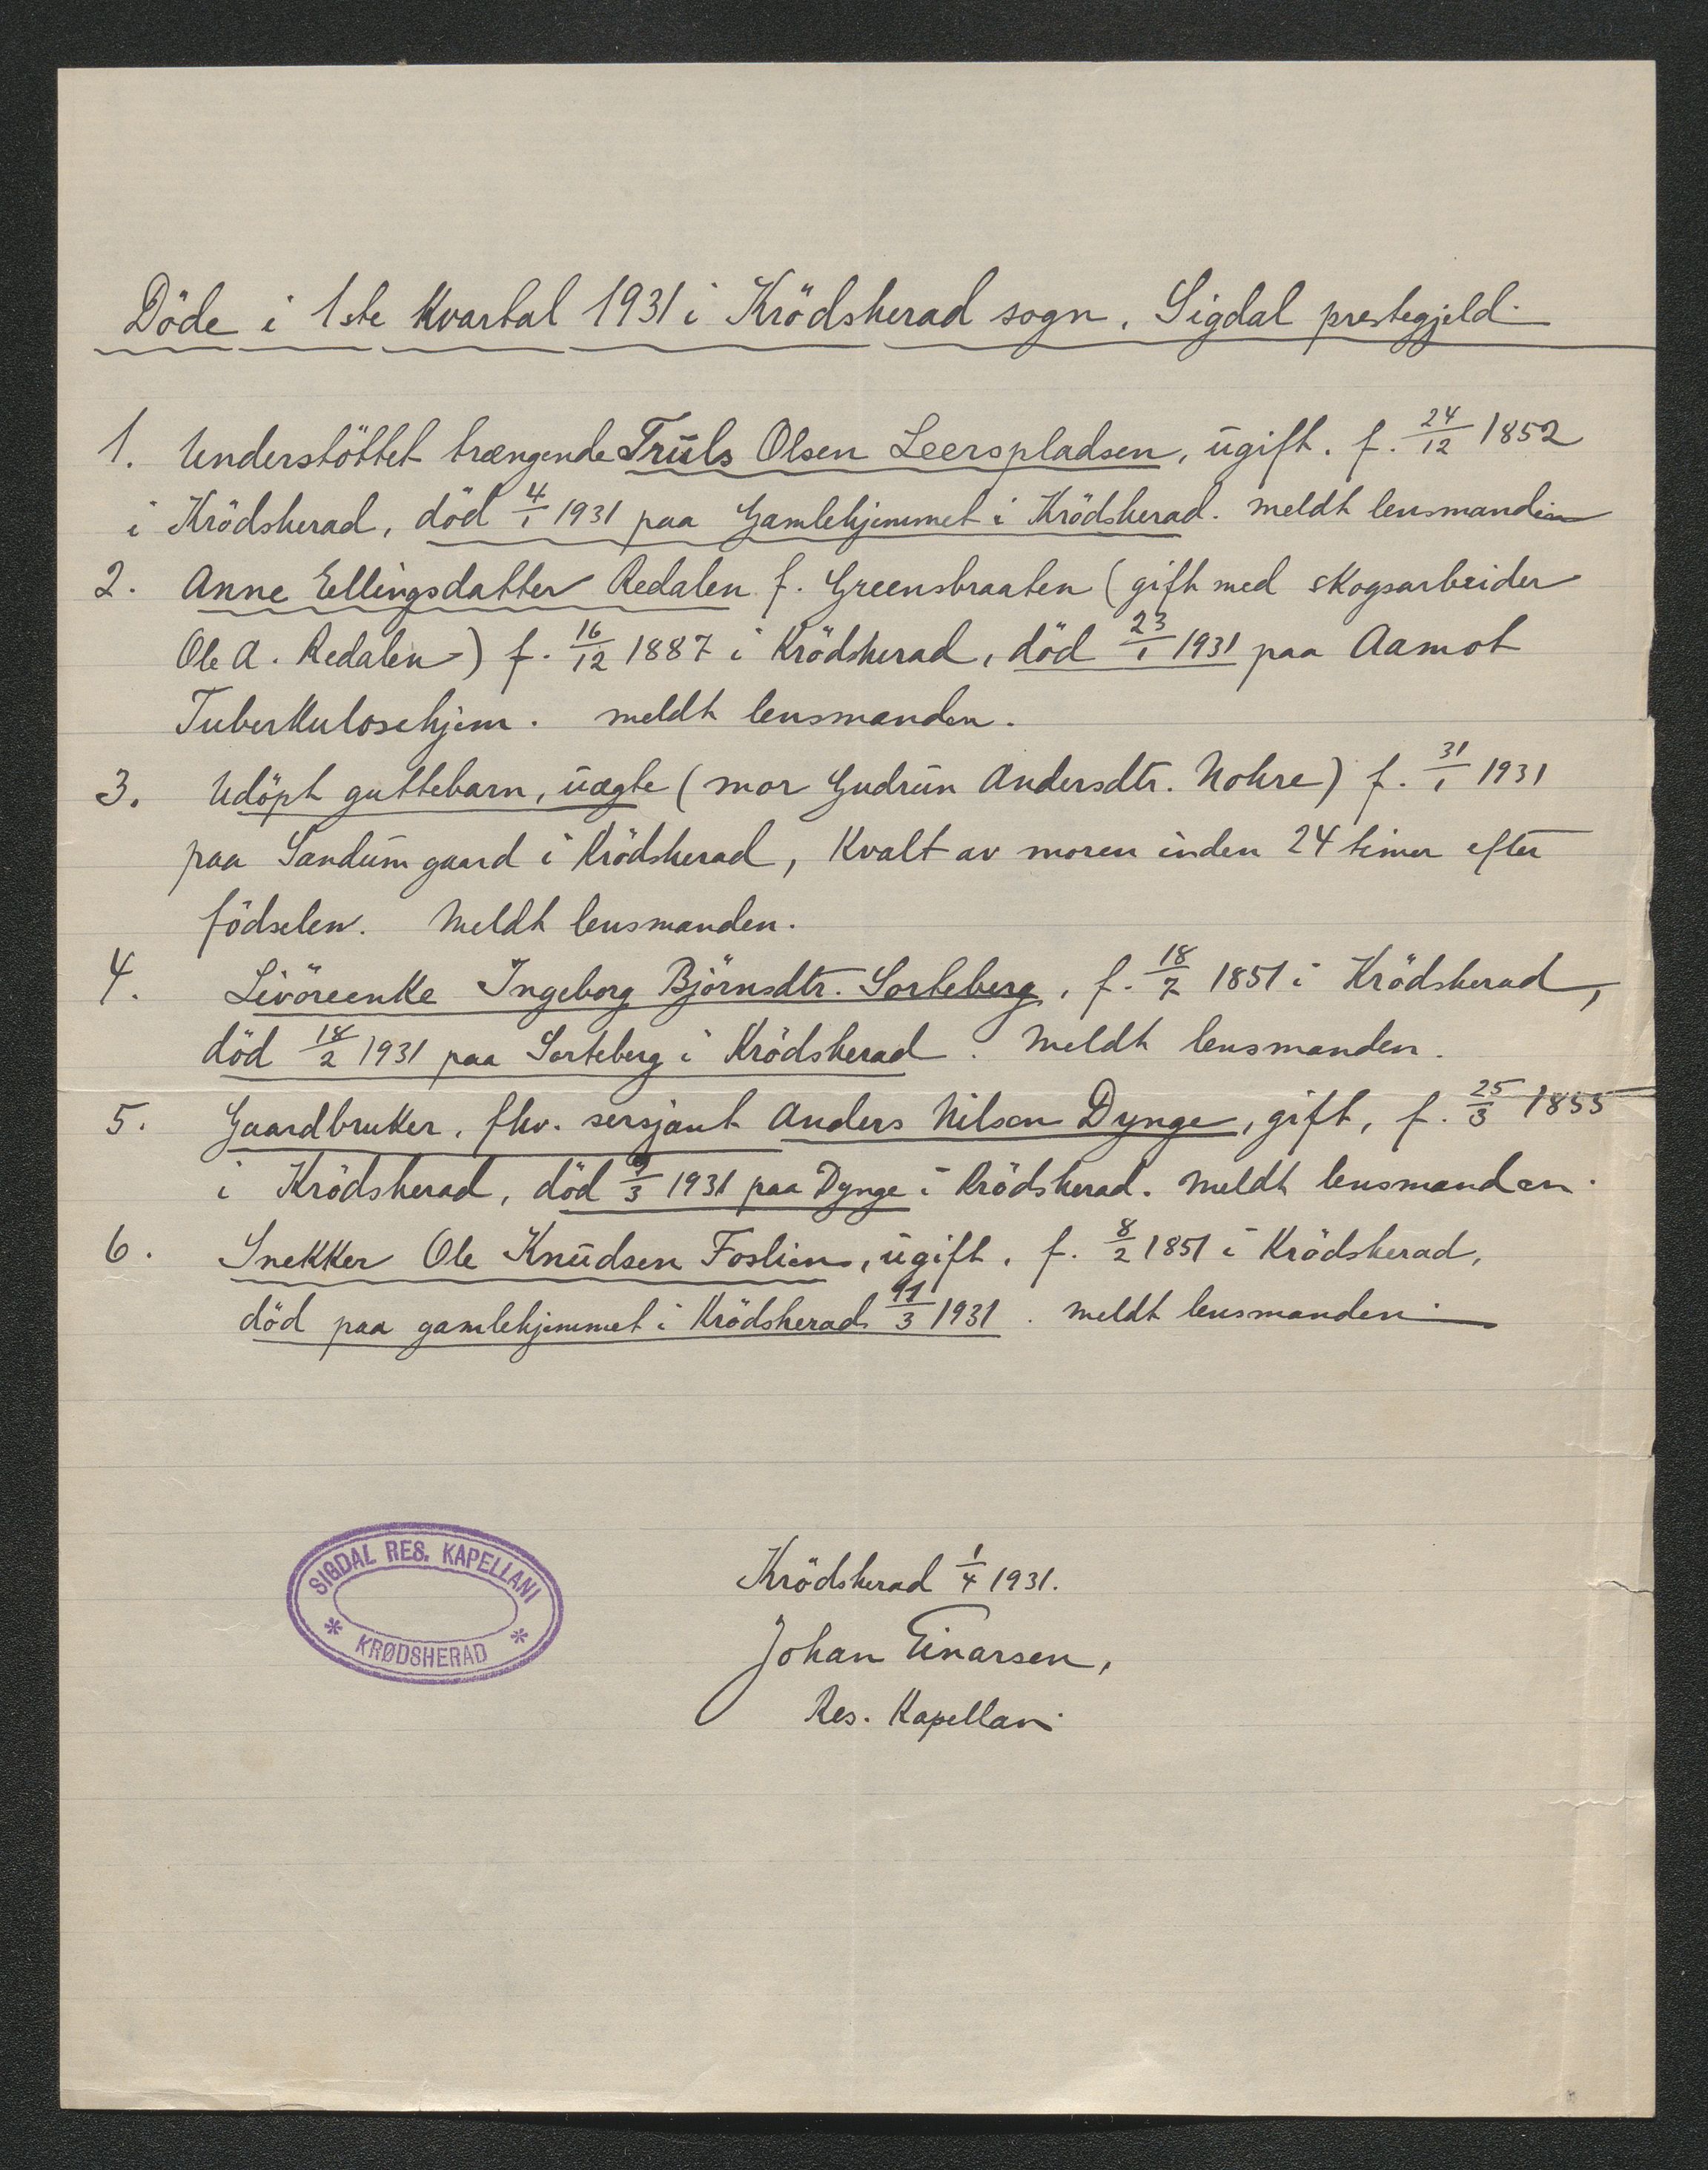 Döde i 1ste Kvartal 1931 i Krödsherad sogn, Sigdal prestegjeld.
1. Understöttet trængende Truls Olsen Leerspladsen, ugift. f. 24/12 1852
i Krödsherad, död 4/1 1931 paa Gamlehjemmet i Krödsherad. meldt lensmanden
2. Anne Ellingsdatter Redalen f. Greensbraaten (gift med skogsarbeider
Ole A. Redalen) f. 16/12 1887 i Krödsherad, död 23/1 1931 paa Aamot
Tuberkulosehjem. meldt lensmanden.
3. Udöpt guttebarn, uægte (mor Gudrun Andersdtr. Nokre) f. 31/1 1931
paa Sandum gaard i Krödsherad, Kvalt av moren inden 24 timer efter
födselen. Meldt lensmanden.
4. Livöreenke Ingeborg Björnsdtr. Sorteberg, f. 18/7 1851 i Krödsherad,
död 18/2 1931 paa Sorteberg i Krödsherad. Meldt lensmanden.
5. Gaardbruker, fhv. sersjant Anders Nilsen Dynge, gift, f. 25/3 1855
i Krödsherad, död /3 1931 paa Dynge i Krödsherad. Meldt lensmanden.
6. Snekker Ole Knudsen Foslien, ugift, f. 8/2 1851 i Krödsherad,
död paa gamlehjemmet i Krödsherad 11/3 1931. meldt lensmanden.
SIGDAL RES. KAPELLANI
* KRØDSHERAD *
Krödsherad 1/4 1931.
Johan Einarsen,
Res. Kapellan.